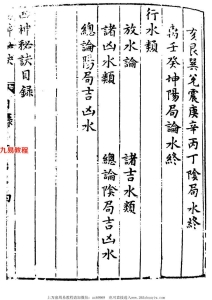 亥艮巽兌震庚辛丙丁陰局水終
子癸坤陽局論水終
行水類
放水論　諸吉水類
諸凶水類　總論陰局吉凶水
總論陽局吉凶水
神秘訣目録
九易教程